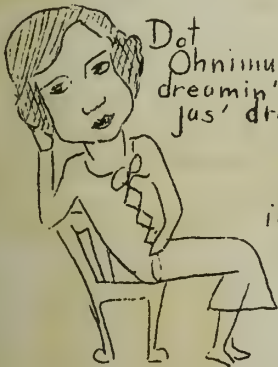 Dot
Ohnimu
dreamin'
jus' dr
i